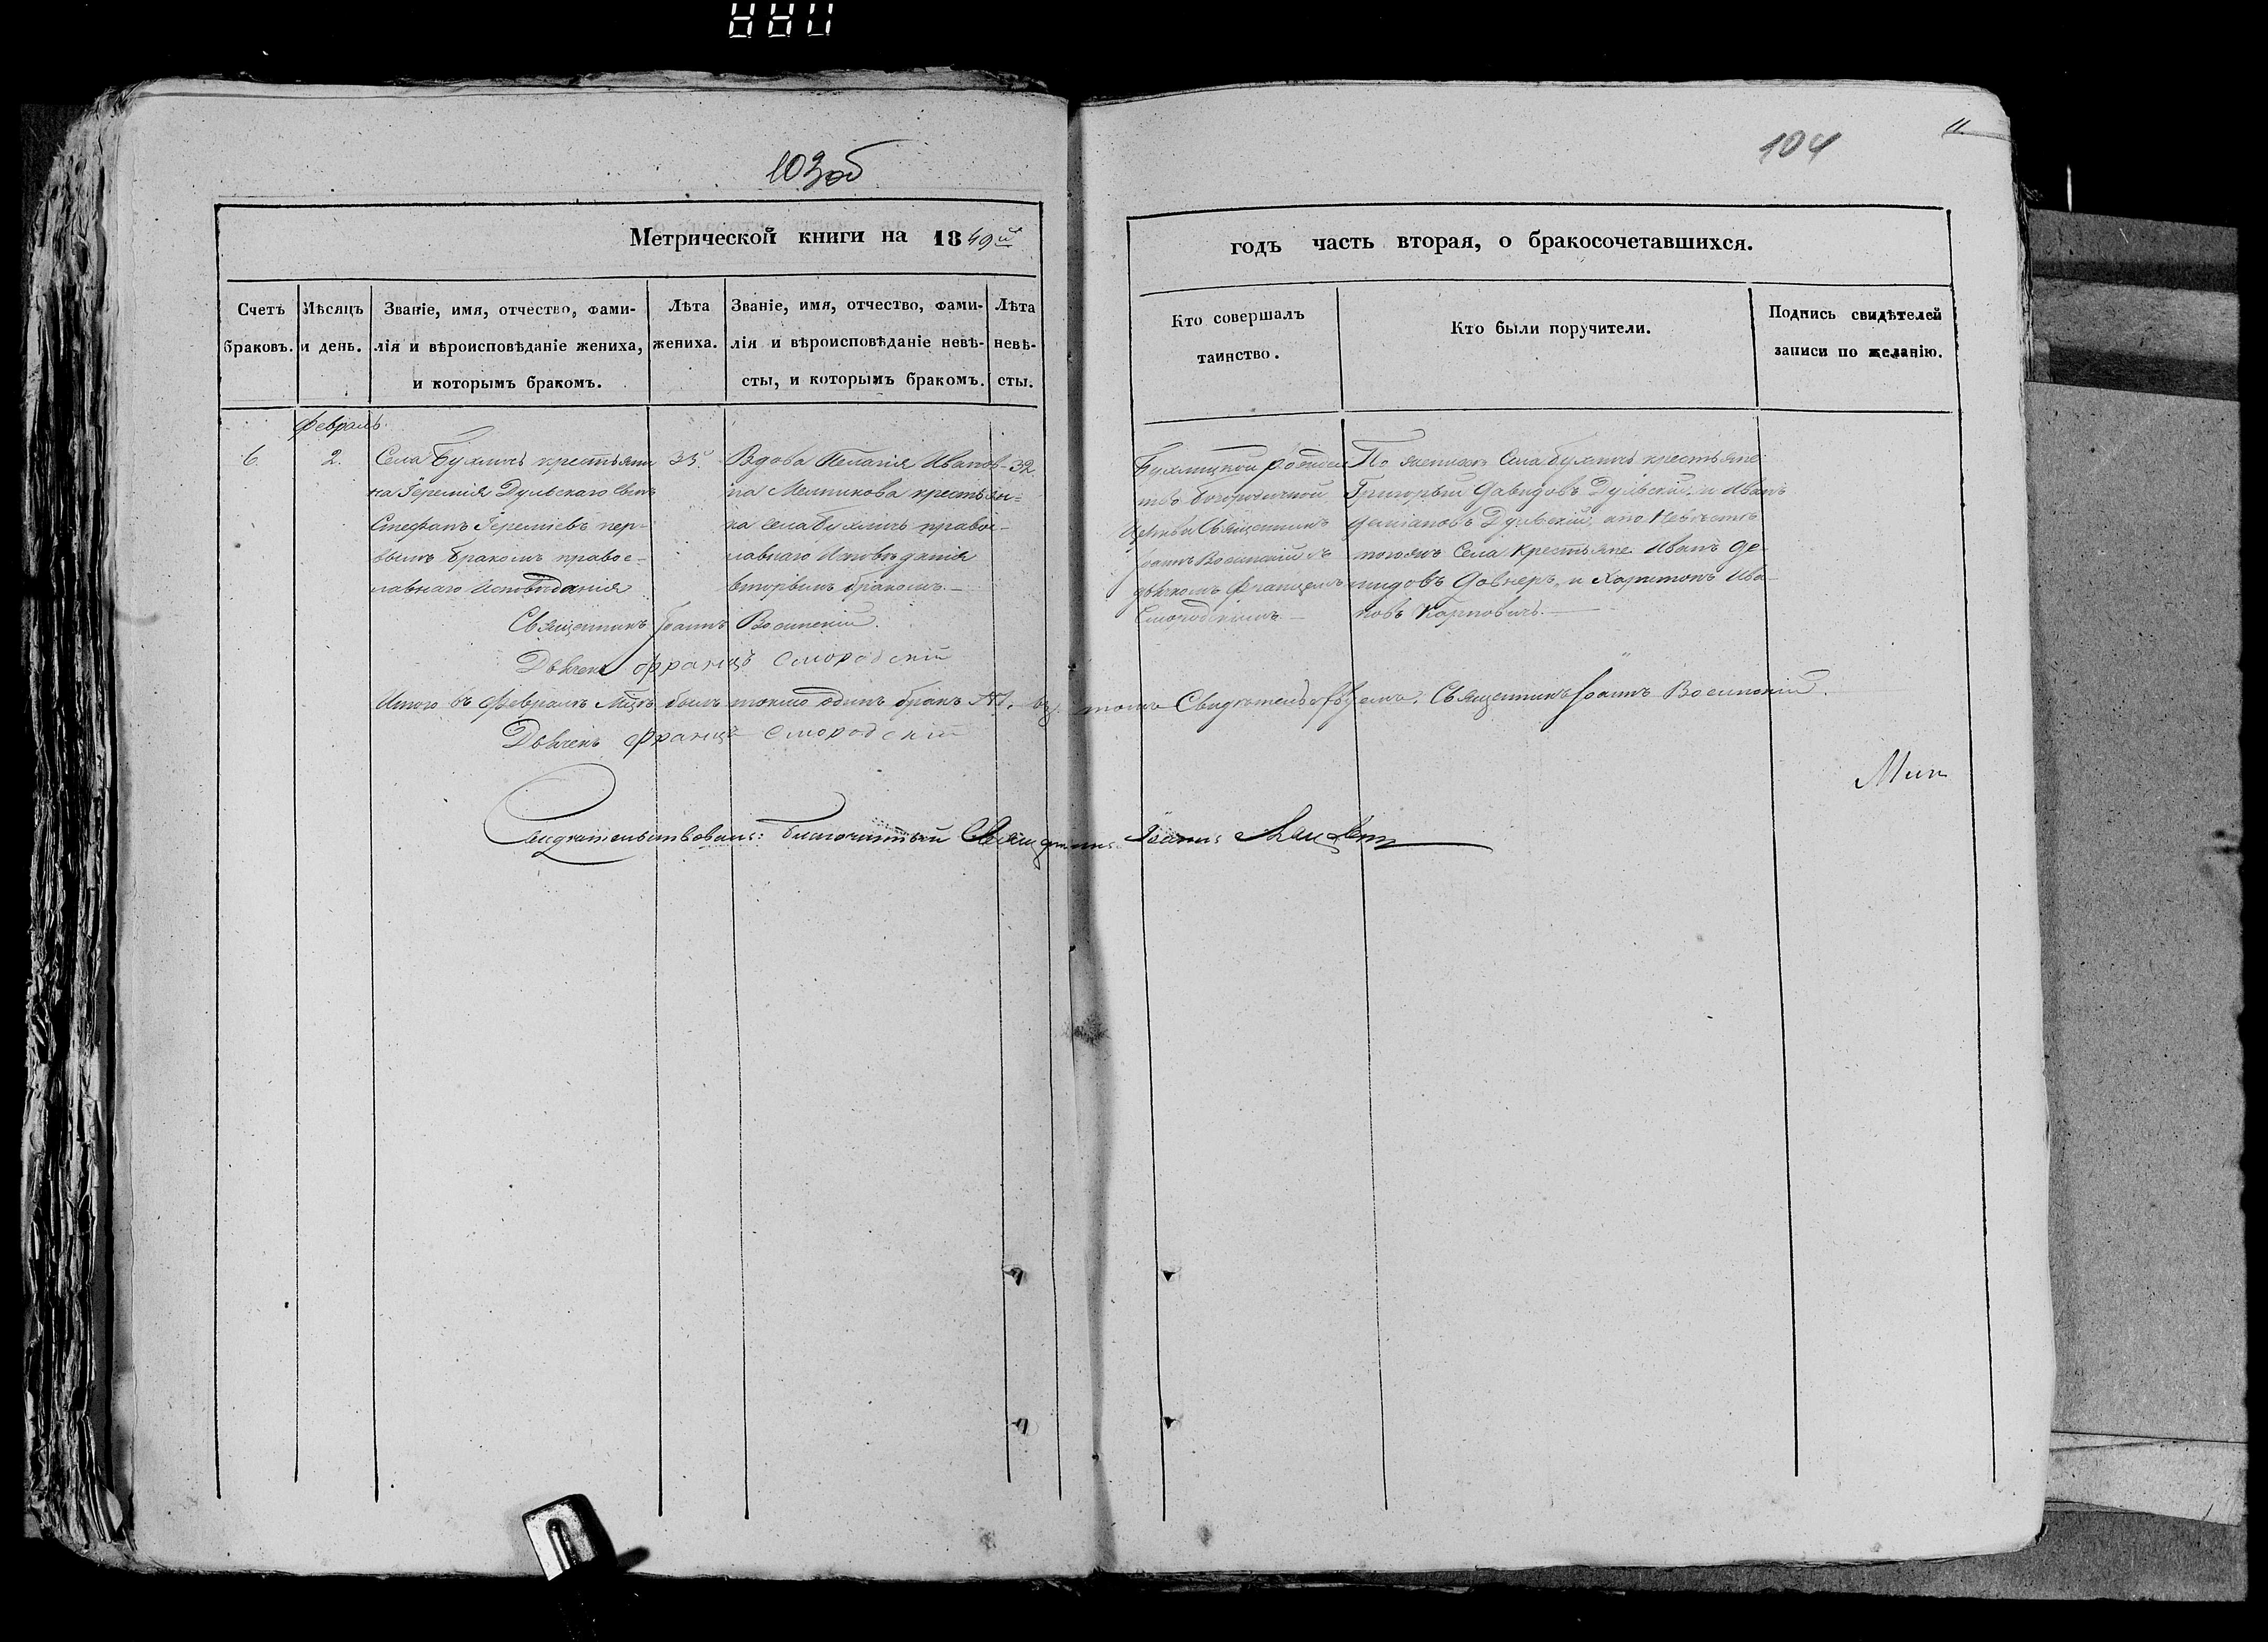 103об
104
11
Метрической книги на 1849й
годъ часть вторая, о бракосочетавшихся.
Счетъ браковъ.
Мѣсяцъ и день.
Званіе, имя, отчество, фами-
лія и вѣроисповѣданіе жениха,
и которымъ бракомъ.
Лѣта
жениха.
Званіе, имя, отчество, фами-
лія и вѣроисповѣданіе невѣ-
сты, и которымъ бракомъ.
Лѣта
невѣ-
сты.
Кто совершалъ
таинство.
Кто были поручители.
Подпись свидѣтелей
записи по желанію.
Февраль
6
2.
Села Бухличъ крестьяни
на Іереміи Дульскаго сынъ
Стефанъ Іереміевъ пер-
вымъ бракомъ правос-
лавнаго Исповѣданія
35.
Вдова Пелагія Иванов-
на Мельникова крестьян-
ка села Бухличъ правос-
лавнаго Исповѣданія
вторымъ бракомъ.
32
Бухлицкой рождес
тво Богородичной
Церкви Священникъ
Іоаннъ съ
дьячкомъ Францемъ
Смородскимъ
По женихѣ Села Бухличъ крестьяне
Григорій Давидовъ Дульскій и Иванъ
Дульскій, а по Невѣстѣ
Села Крестьяне Иванъ Де-
мидовъ и Харитонъ Ива-
новъ Карповичъ.
Священникъ Іоаннъ
Дьячекъ Францъ Смородскій
Итого въ Февралѣ Мцѣ былъ токмо одинъ бракъ №1. въ томъ Священникъ Іоаннъ
Дьячекъ Францъ Смородскій
Свидѣтельствовалъ: Благочинный Священникъ Іоаннъ